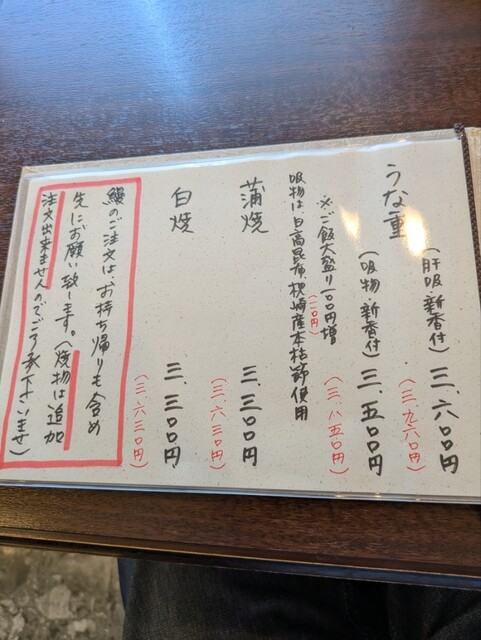 うな重
(肝吸・新香付) 三、六〇〇円
(三、九六〇円)
(吸物・新香付) 三、五〇〇円
(三、八五〇円)
※ご飯大盛り一〇〇円増
(一一〇円)
吸物は日高昆布、枕崎産本枯節使用
蒲焼 三、三〇〇円
(三、六三〇円)
白焼 三、三〇〇円
(三、六三〇円)
鰻のご注文は、お持ち帰りも含め
先にお願い致します。(焼物は追加
注文出来ませんのでご了承下さいませ)